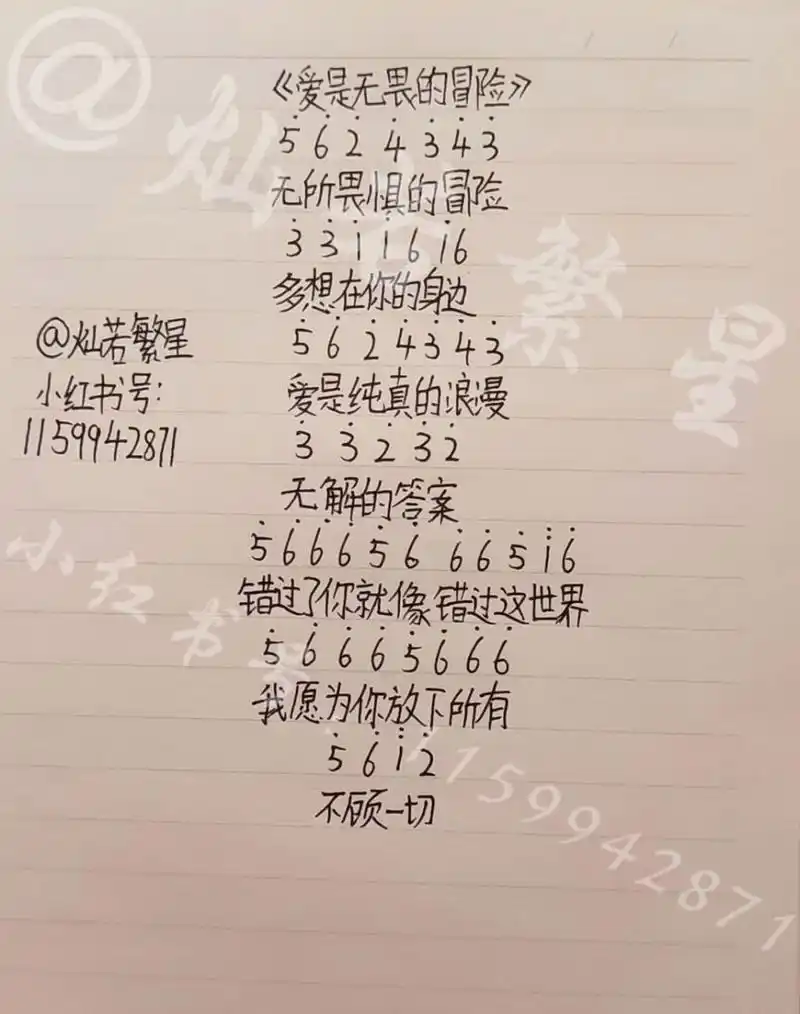 《爱是无畏的冒险》
5 6 2 4 3 4 3
无所畏惧的冒险
3 3 1 1 6 1 6
多想在你的身边
5 6 2 4 3 4 3
爱是纯真的浪漫
3 3 2 3 2
无解的答案
5 6 6 6 5 6 6 6 5 1 6
错过了你就像错过这世界
5 6 6 6 5 6 6 6
我愿为你放下所有
5 6 1 2
不顾一切
@灿若繁星
小红书号:
1159942871
@灿若繁星
小红书号 1159942871